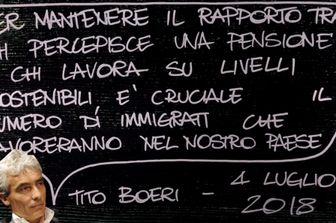 ER MANTENERE IL RAPPORTO TR
HI PERCEPISCE UNA PENSIONE
E CHI LAVORA SU LIVELLI
OSTENIBILI E' CRUCIALE IL
UMERO DI IMMIGRATI CHE
AVORERANNO NEL NOSTRO PAESE
TITO BOERI - 4 LUGLIO
2018